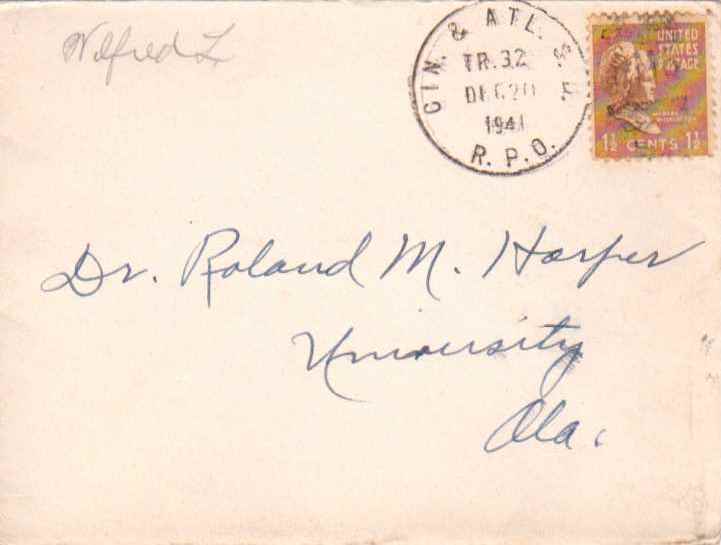 Wilfred L
CIN. & ATL. S.D.
TR.32
DEC 20
1941
R.P.O.
UNITED
STATES
POSTAGE
1½ CENTS 1½
Dr. Roland M. Harper
University
Ala.